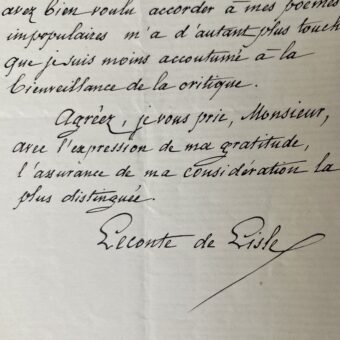 avez bien voulu accorder à mes poèmes
impopulaires m'a d'autant plus touch
que je suis moins accoutumé à la
bienveillance de la critique.
Agréez, je vous prie, Monsieur,
avec l'expression de ma gratitude,
l'assurance de ma considération la
plus distinguée.
Leconte de Lisle